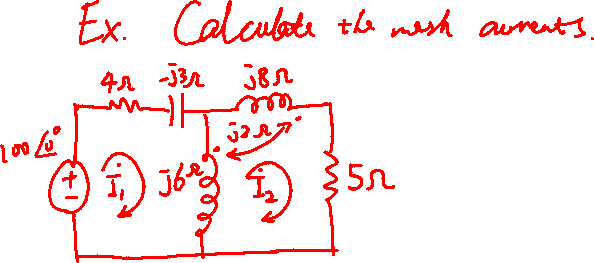 Ex. Calculate the mesh currents.
4Ω -j3Ω j8Ω
100∠0° j2Ω
+
-
I₁ j6Ω I₂ 5Ω